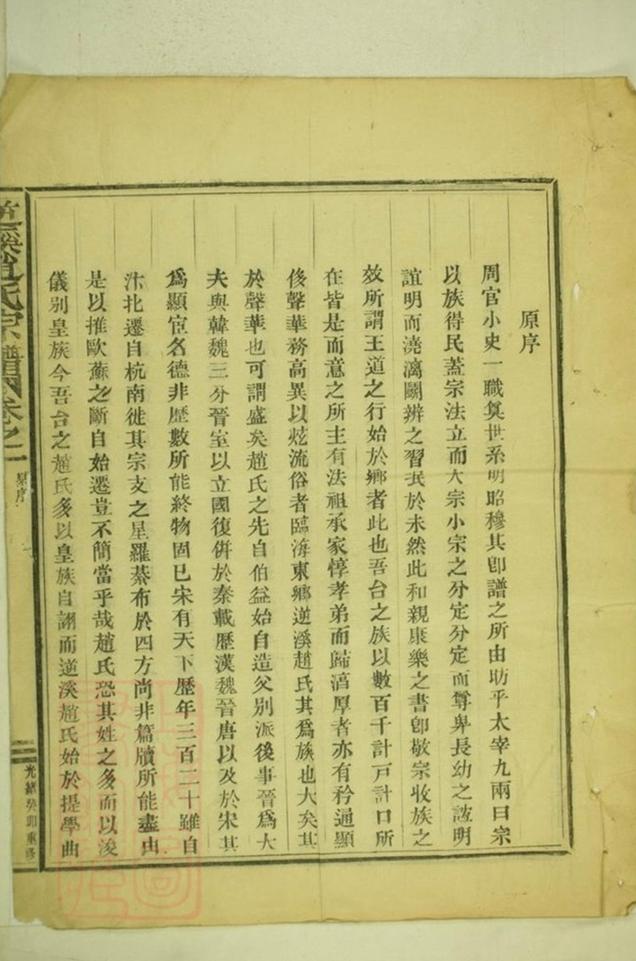 原序
周官小史一職奠世系明昭穆其卽譜之所由昉乎太宰九兩曰宗
以族得民蓋宗法立而大宗小宗之分定分定而尊卑長幼之誼明
誼明而澆漓鬭辨之習泯於未然此和親康樂之書卽敬宗收族之
效所謂王道之行始於鄉者此也吾台之族以數百千計戸計口所
在皆是而意之所主有法祖承家惇孝弟而歸滀厚者亦有矜通顯
侈聲華務高異以炫流俗者臨海東鄉逆溪趙氏其爲族也大矣其
於聲華也可謂盛矣趙氏之先自伯益始自造父別派後事晉爲大
夫與韓魏三分晉室以立國復併於秦載歷漢魏晉唐以及於宋其
爲顯宦名德非歷數所能終物固已宋有天下歷年三百二十雖自
汴北遷自杭南徙其宗支之星羅棊布於四方尚非篇牘所能盡由
是以推歐蘇之斷自始遷豈不簡當乎哉趙氏恐其姓之多而以浚
儀別皇族今吾台之趙氏多以皇族自詡而逆溪趙氏始於提學曲
溪趙氏宗譜 卷之一
原序
光緒癸卯重修